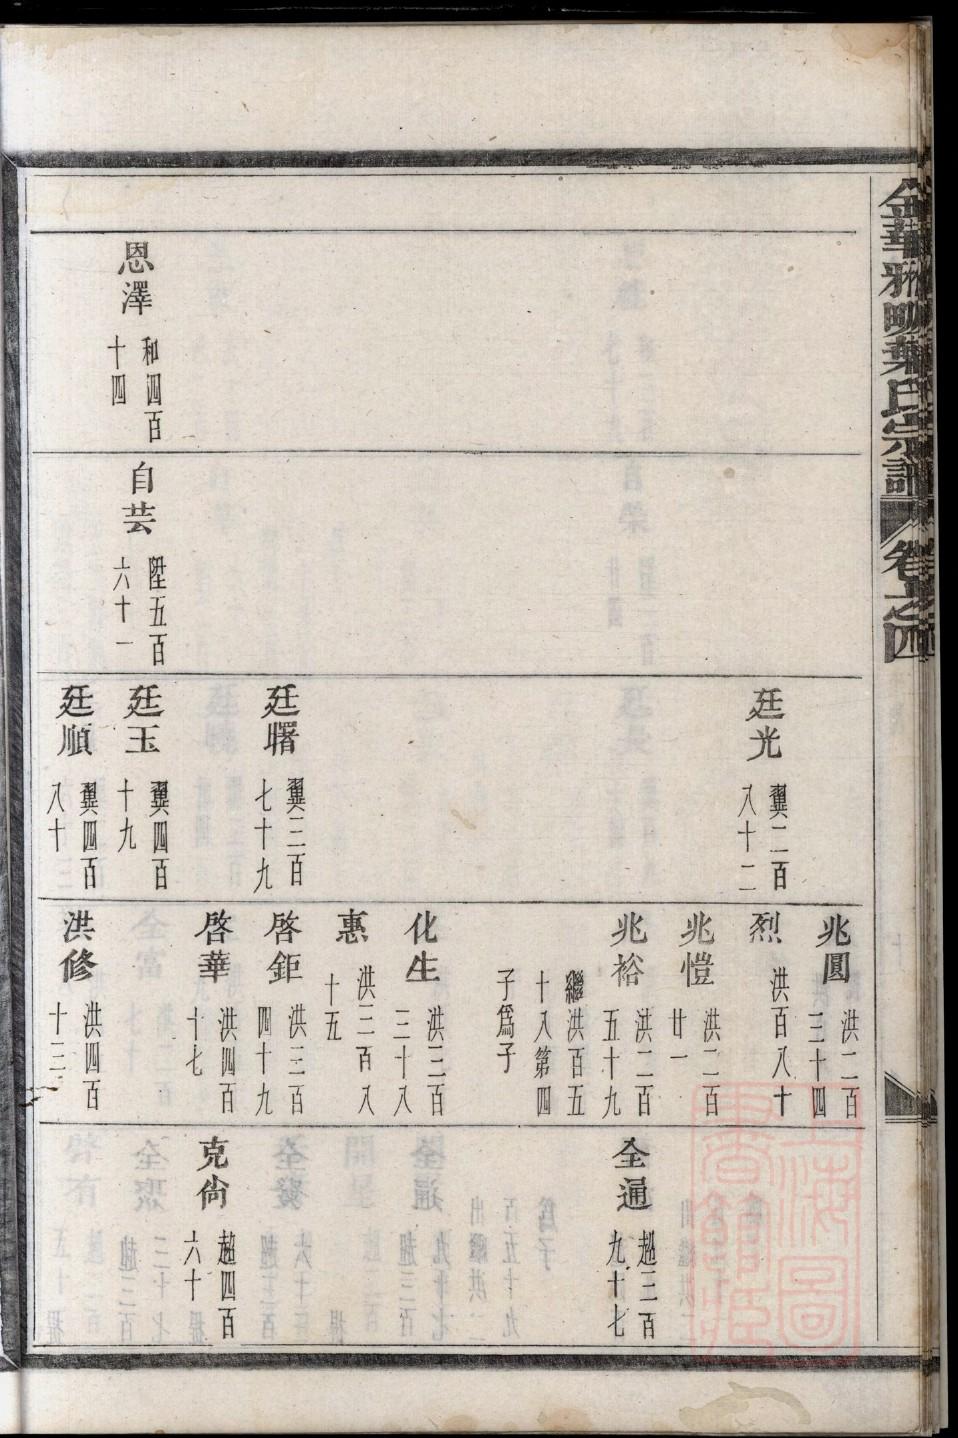 金華雅畈葉氏宗譜 卷之四
恩澤 和四百
十四
自芸 陞五百
六十一
廷光 翼二百
八十二
廷曙 翼三百
七十九
廷玉 翼四百
十九
廷順 翼四百
八十三
兆圓 洪二百
三十四
烈 洪百八十
兆愷 洪二百
廿一
兆裕 洪二百
五十九
繼洪百五
十八第四
子爲子
化生 洪三百
三十八
惠 洪三百八
十五
啓鉅 洪三百
四十九
啓華 洪四百
十七
洪修 洪四百
十三
全通 超三百
九十七
克尙 超四百
六十
上海圖書館藏